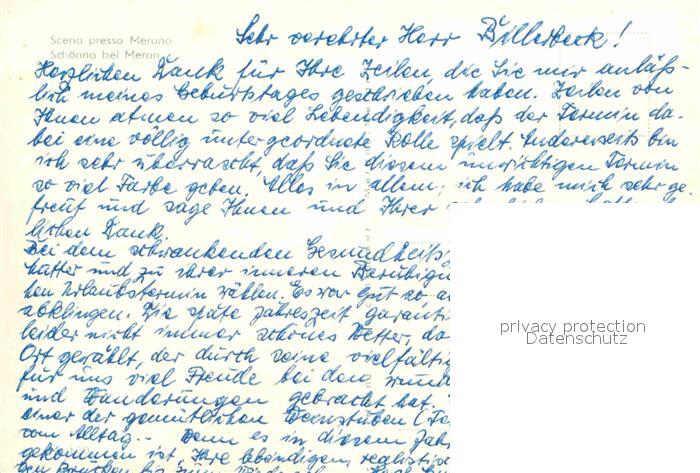 Scena presso Merano
Schönna bei Meran
Sehr verehrter Herr Billerbeck!
Herzlichen Dank für Ihre Zeilen, die Sie mir anläß-
lich meines Geburtstages geschrieben haben. Zeilen von
Ihnen atmen so viel Lebendigkeit, daß der Termin da-
bei eine völlig untergeordnete Rolle spielt. Andererseits bin
ich sehr überrascht, daß Sie diesem unwichtigen Termin
so viel Farbe geben. Alles in allem, ich habe mich sehr ge-
freut und sage Ihnen und Ihrer
lichen Dank.
Bei dem schwankenden Gesundheits
mutter und zu ihrer inneren Beruhigu
ten Urlaubstermin wählen. Es war gut so, a
abklingen. Die späte Jahreszeit garanti
leider nicht immer schönes Wetter, da
Ort gewählt, der durch seine vielfälti
für uns viel Freude bei den wund
und Wanderungen gebracht hat.
einer der gemütlichen Weinstuben
vom Alltag. - Wenn es in diesem Jah
gekommen ist, Ihre lebendigen, realistisc
privacy protection
Datenschutz